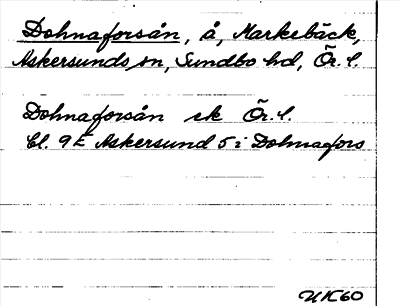 Dohnaforsån, å, Markebäck,
Askersunds sn, Sundbo hd, Ör. l.
Dohnaforsån ek Ör. l.
Bl. 9E Askersund 5 i Dohnafors
UK60